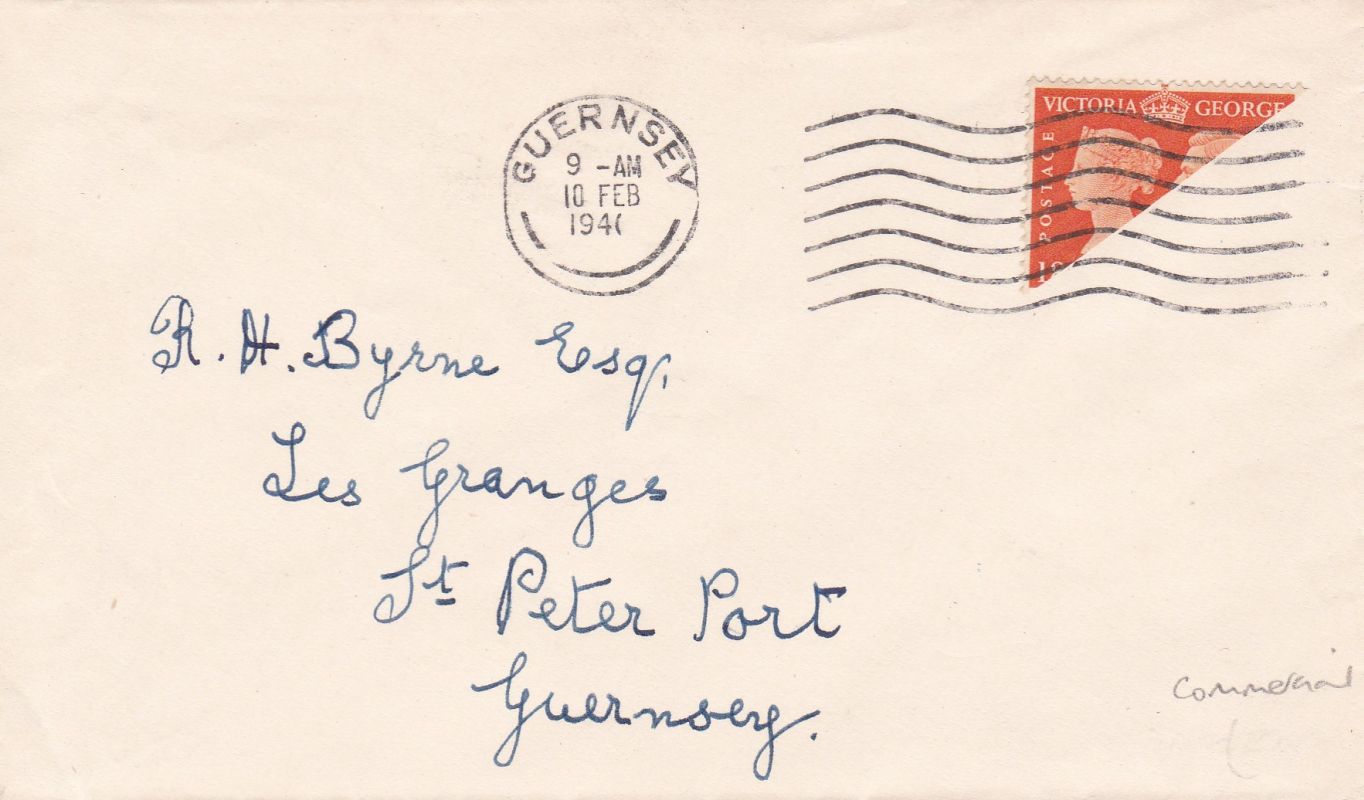 GUERNSEY
9 - AM
10 FEB
194
VICTORIA GEORGE
POSTAGE
R. H. Byrne Esq,
Les Granges
St Peter Port
Guernsey.
Commercial